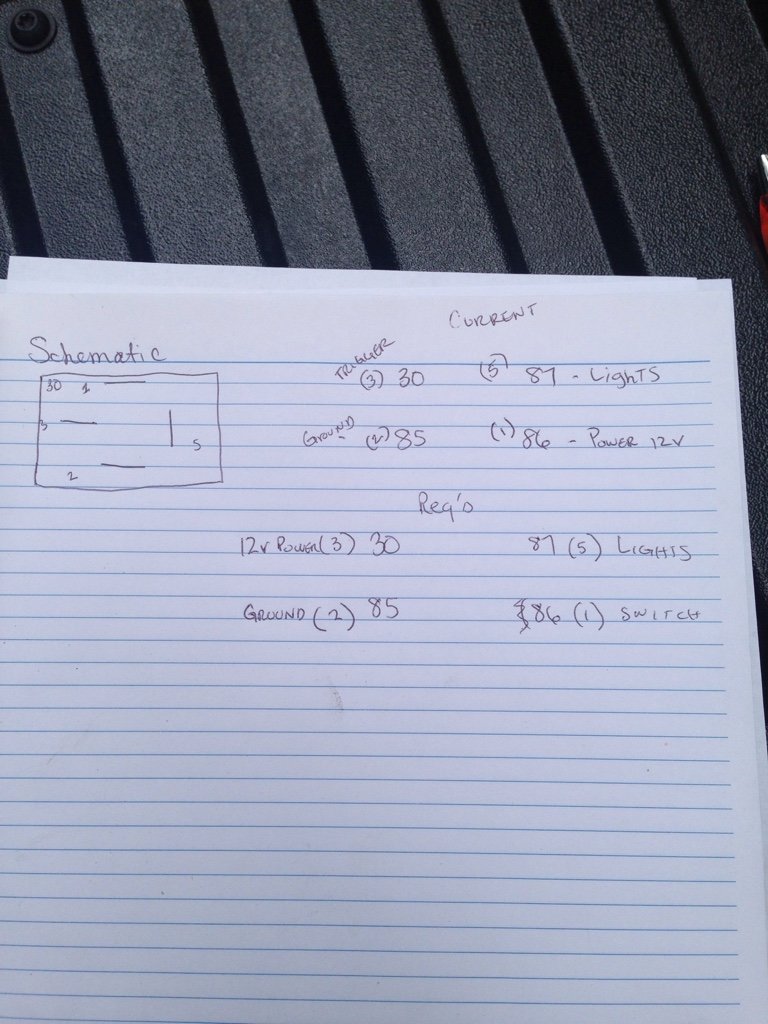 CURRENT
Schematic
TRIGGER
(3) 30 (5) 87 - LighTS
30 1
3
5
2
GROUND (2) 85 (1) 86 - POWER 12V
Req'd
12V POWER (3) 30 87 (5) LIGHTS
GROUND (2) 85 86 (1) SWITCH